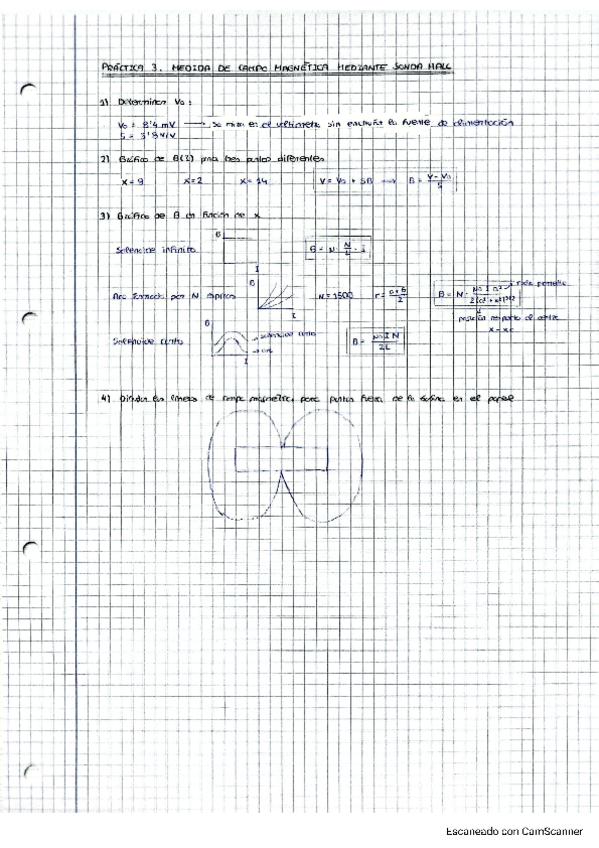 PRÁCTICA 3. MEDIDA DE CAMPO MAGNÉTICA MEDIANTE SONDA HALL
1) Determinar V₀:
V₀ = 8'4 mV → Se mide en el voltímetro sin enchufar la fuente de alimentación
S = 3'8 V/V
2) Gráfico de B(I) para tres puntos diferentes
x=9 x=2 x=14 V = V₀ + SB → B = V - V₀ / S
3) Gráfico de B en función de x
B
Solenoide infinito B = μ · N/L · I
I
B
por N espiras N = 1500 r = a+b/2 B = N · μ₀ I a² / 2(a² + x²)^3/2 radio
I
posición respecto al centro
x - xc
B
Solenoide corto solenoide corto B = μ₀ I N / 2L
I
4) Dibujar las líneas de campo magnético para puntos fuera de la bobina en el papel
Escaneado con CamScanner